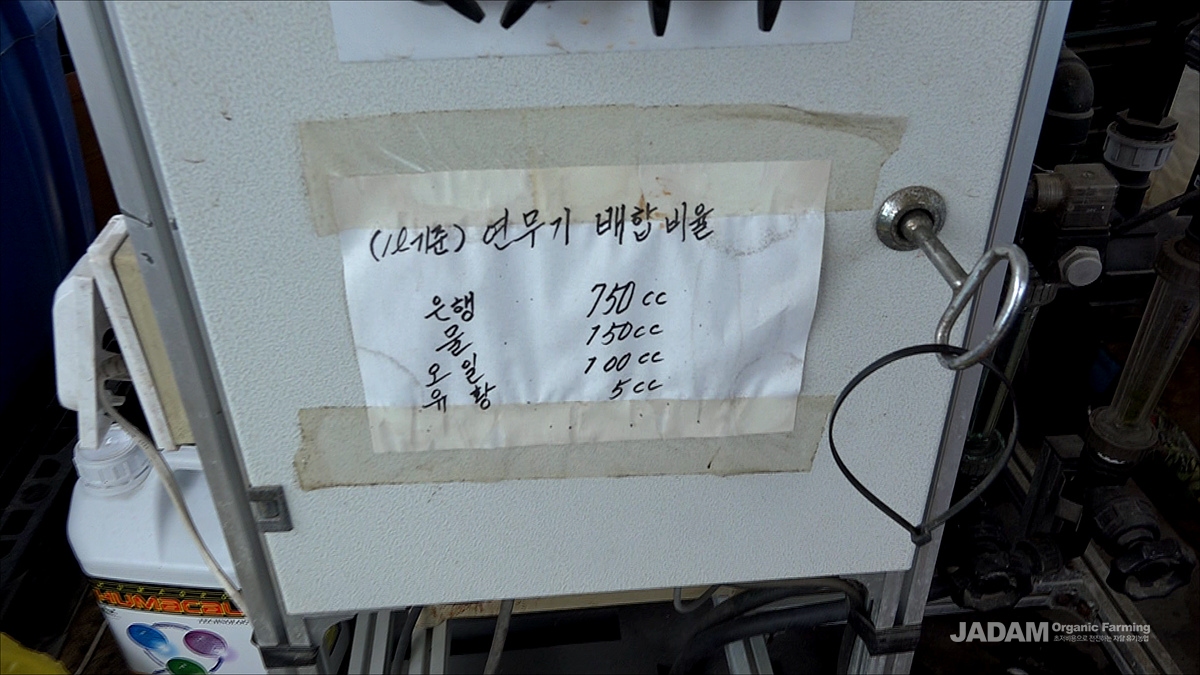 (1ℓ기준) 연무기 배합비율
은행 750cc
물 150cc
오일 100cc
유황 5cc
HUMACAL
JADAM Organic Farming
초저비용으로 전진하는 자닮 유기농업